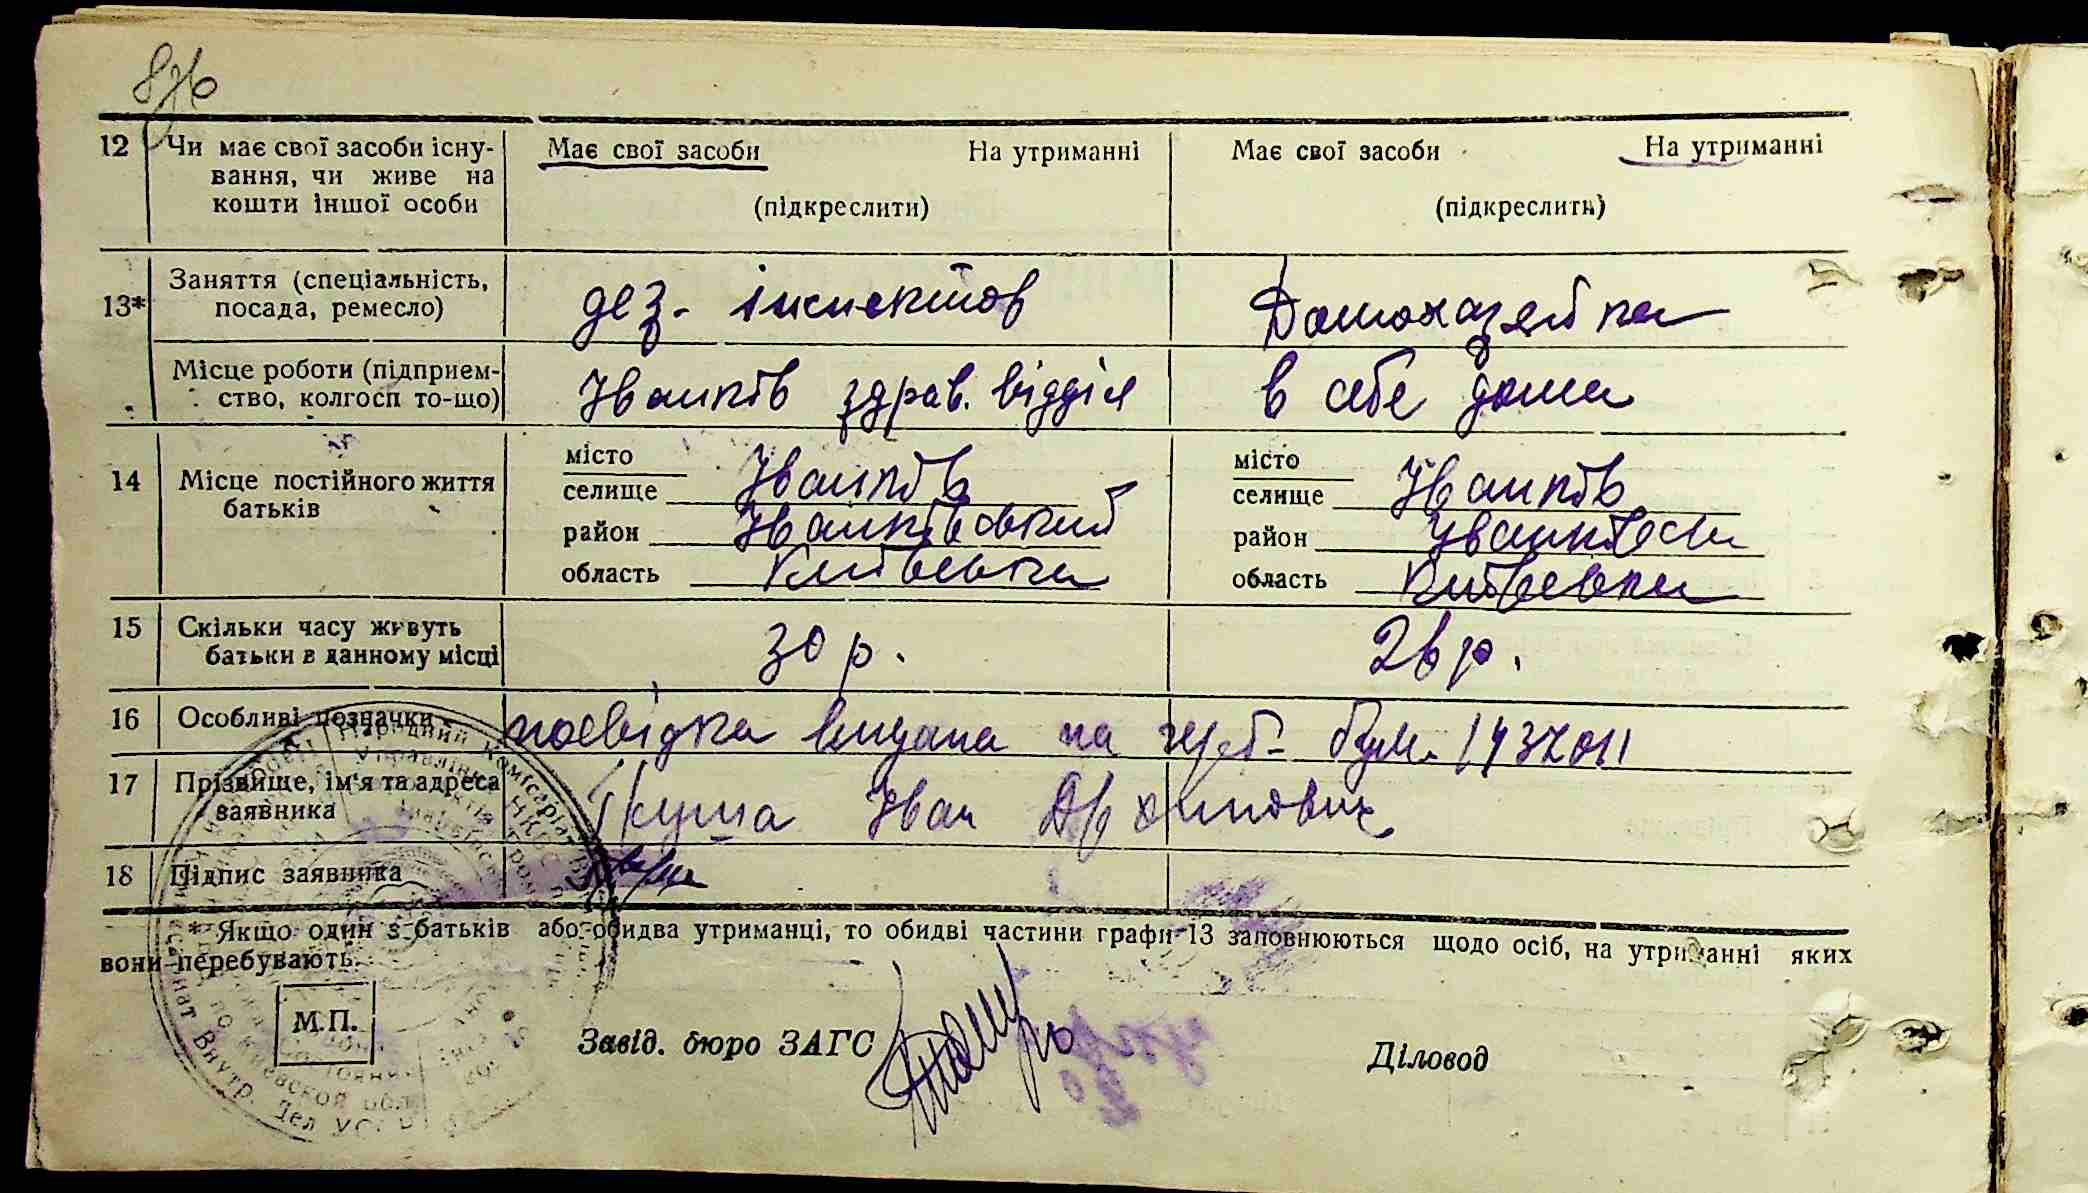 12 Чи має свої засоби існу-
вання, чи живе на
кошти іншої особи
Має свої засоби На утриманні
(підкреслити)
Має свої засоби На утриманні
(підкреслить)
13* Заняття (спеціальність,
посада, ремесло)
дез. інспектор
Домохазяйка
Місце роботи (підприєм-
ство, колгосп то-що)
Іванків здрав. відділ
в себе дома
14 Місце постійного життя
батьків
місто
селище Іванків
район Іванківський
область Київська
місто
селище Іванків
район
область Київська
15 Скільки часу живуть
батьки в данному місці
30 р.
26 р.
16 Особливі позначки
посвідка видана на герб. бум.
17 Прізвище, ім'я та адреса
заявника
Іван
18 Підпис заявника
* Якщо один з батьків або обидва утриманці, то обидві частини графи 13 заповнюються щодо осіб, на утриманні яких
вони перебувають.
М.П.
Завід. бюро ЗАГС
Діловод